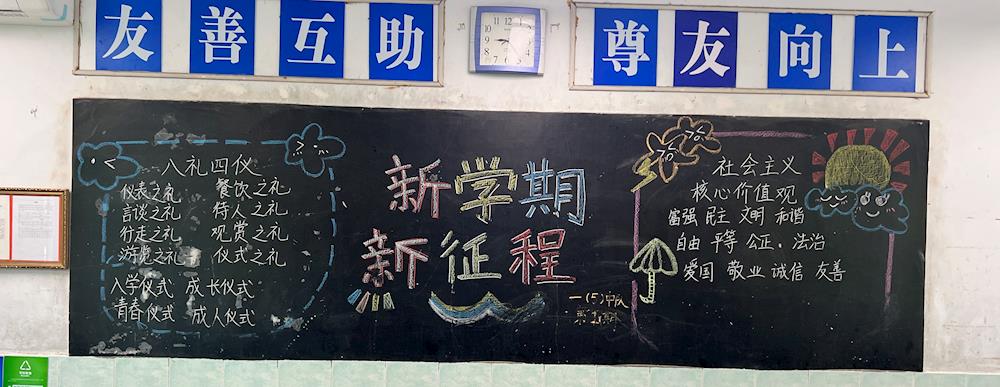 友善互助
尊友向上
八礼四仪
仪表之礼 餐饮之礼
言谈之礼 待人之礼
行走之礼 观赏之礼
游览之礼 仪式之礼
入学仪式 成长仪式
青春仪式 成人仪式
新学期
新征程
一(5)中队
社会主义
核心价值观
富强 民主 文明 和谐
自由 平等 公正、法治
爱国 敬业 诚信 友善